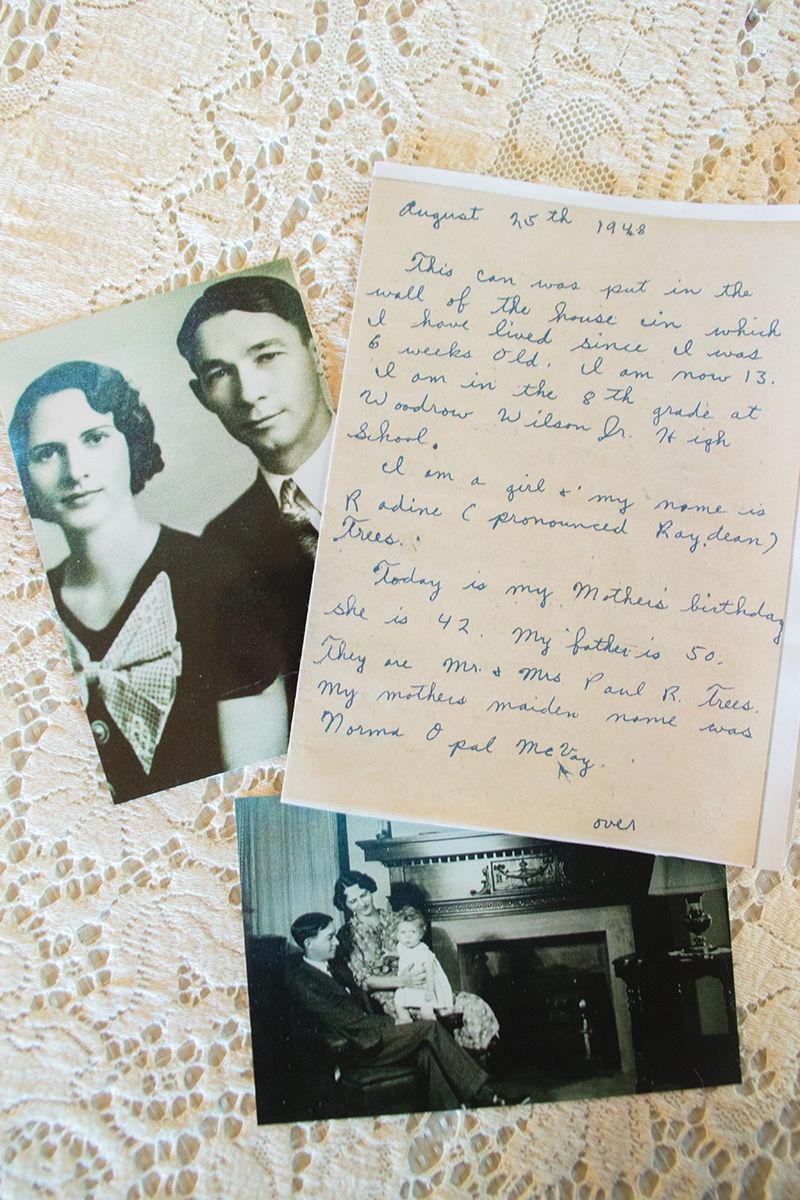 August 25th 1948
This can was put in the
wall of the house in which
I have lived since I was
6 weeks old. I am now 13.
I am in the 8th grade at
Woodrow Wilson Jr. High
School.
I am a girl & my name is
Radine (pronounced Raydean)
Trees.
Today is my Mother's birthday
she is 42. My father is 50.
They are Mr. & Mrs Paul R. Trees.
My mothers maiden name was
Norma Opal McVay.
over